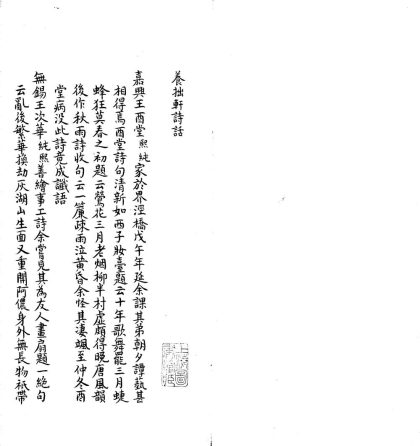 養拙軒詩話
嘉興王酉堂熙純家於界涇橋戊午年延余課其弟朝夕譚藝甚
相得焉酉堂詩句清新如西子妝臺題云十年歌舞罷三月蜨
蜂狂莫春之初題云鶯花三月老烟柳半村虛頗得晚唐風韻
後作秋雨詩收句云一簾疎雨泣黃昏余怪其凄颯至仲冬酉
堂病没此詩竟成讖語
無錫王次華純熙善繪事工詩余嘗見其為友人畫扇題一絶句
云亂後繁華換劫灰湖山生面又重開阿儂身外無長物祇帶